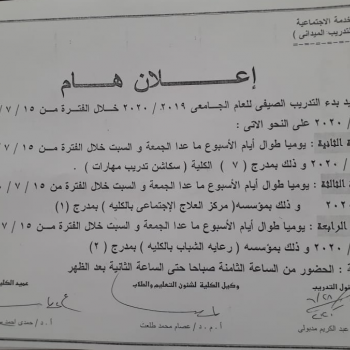 خدمة الاجتماعية
لتدريب الميدانى )
إعــلان هــام
يد بدء التدريب الصيفى للعام الجامعى ٢٠١٩ / ٢٠٢٠ خلال الفترة من ١٥ / ٧ /
/ ٢٠٢٠ على النحو الاتى :
ة الثانية : يوميا طوال أيام الأسبوع ما عدا الجمعة و السبت خلال الفترة من ١٥ / ٧ /
/ ٢٠٢٠ و ذلك بمدرج ( ٧ ) الكلية ( سكاشن تدريب مهارات ) .
الثالثة : يوميا طوال أيام الأسبوع ما عدا الجمعة و السبت خلال الفترة من ١٥ / ٧ /
٢٠٢ و ذلك بمؤسسه( مركز العلاج الإجتماعى بالكليه) بمدرج (١)
الرابعة : يوميا طوال أيام الأسبوع ما عدا الجمعة و السبت خلال الفترة من ١٥ / ٧
/ ٢٠٢٠ و ذلك بمؤسسه ( رعايه الشباب بالكليه ) بمدرج ( ٢ )
: الحضور من الساعة الثامنة صباحا حتى الساعة الثانية بعد الظهر
ئول التدريب وكيل الكلية لشئون التعليم والطلاب عميد الكلية
عبد الكريم متبولى أ.م.د/ عصام محمد طلعت أ.د/ حمدى أحمد